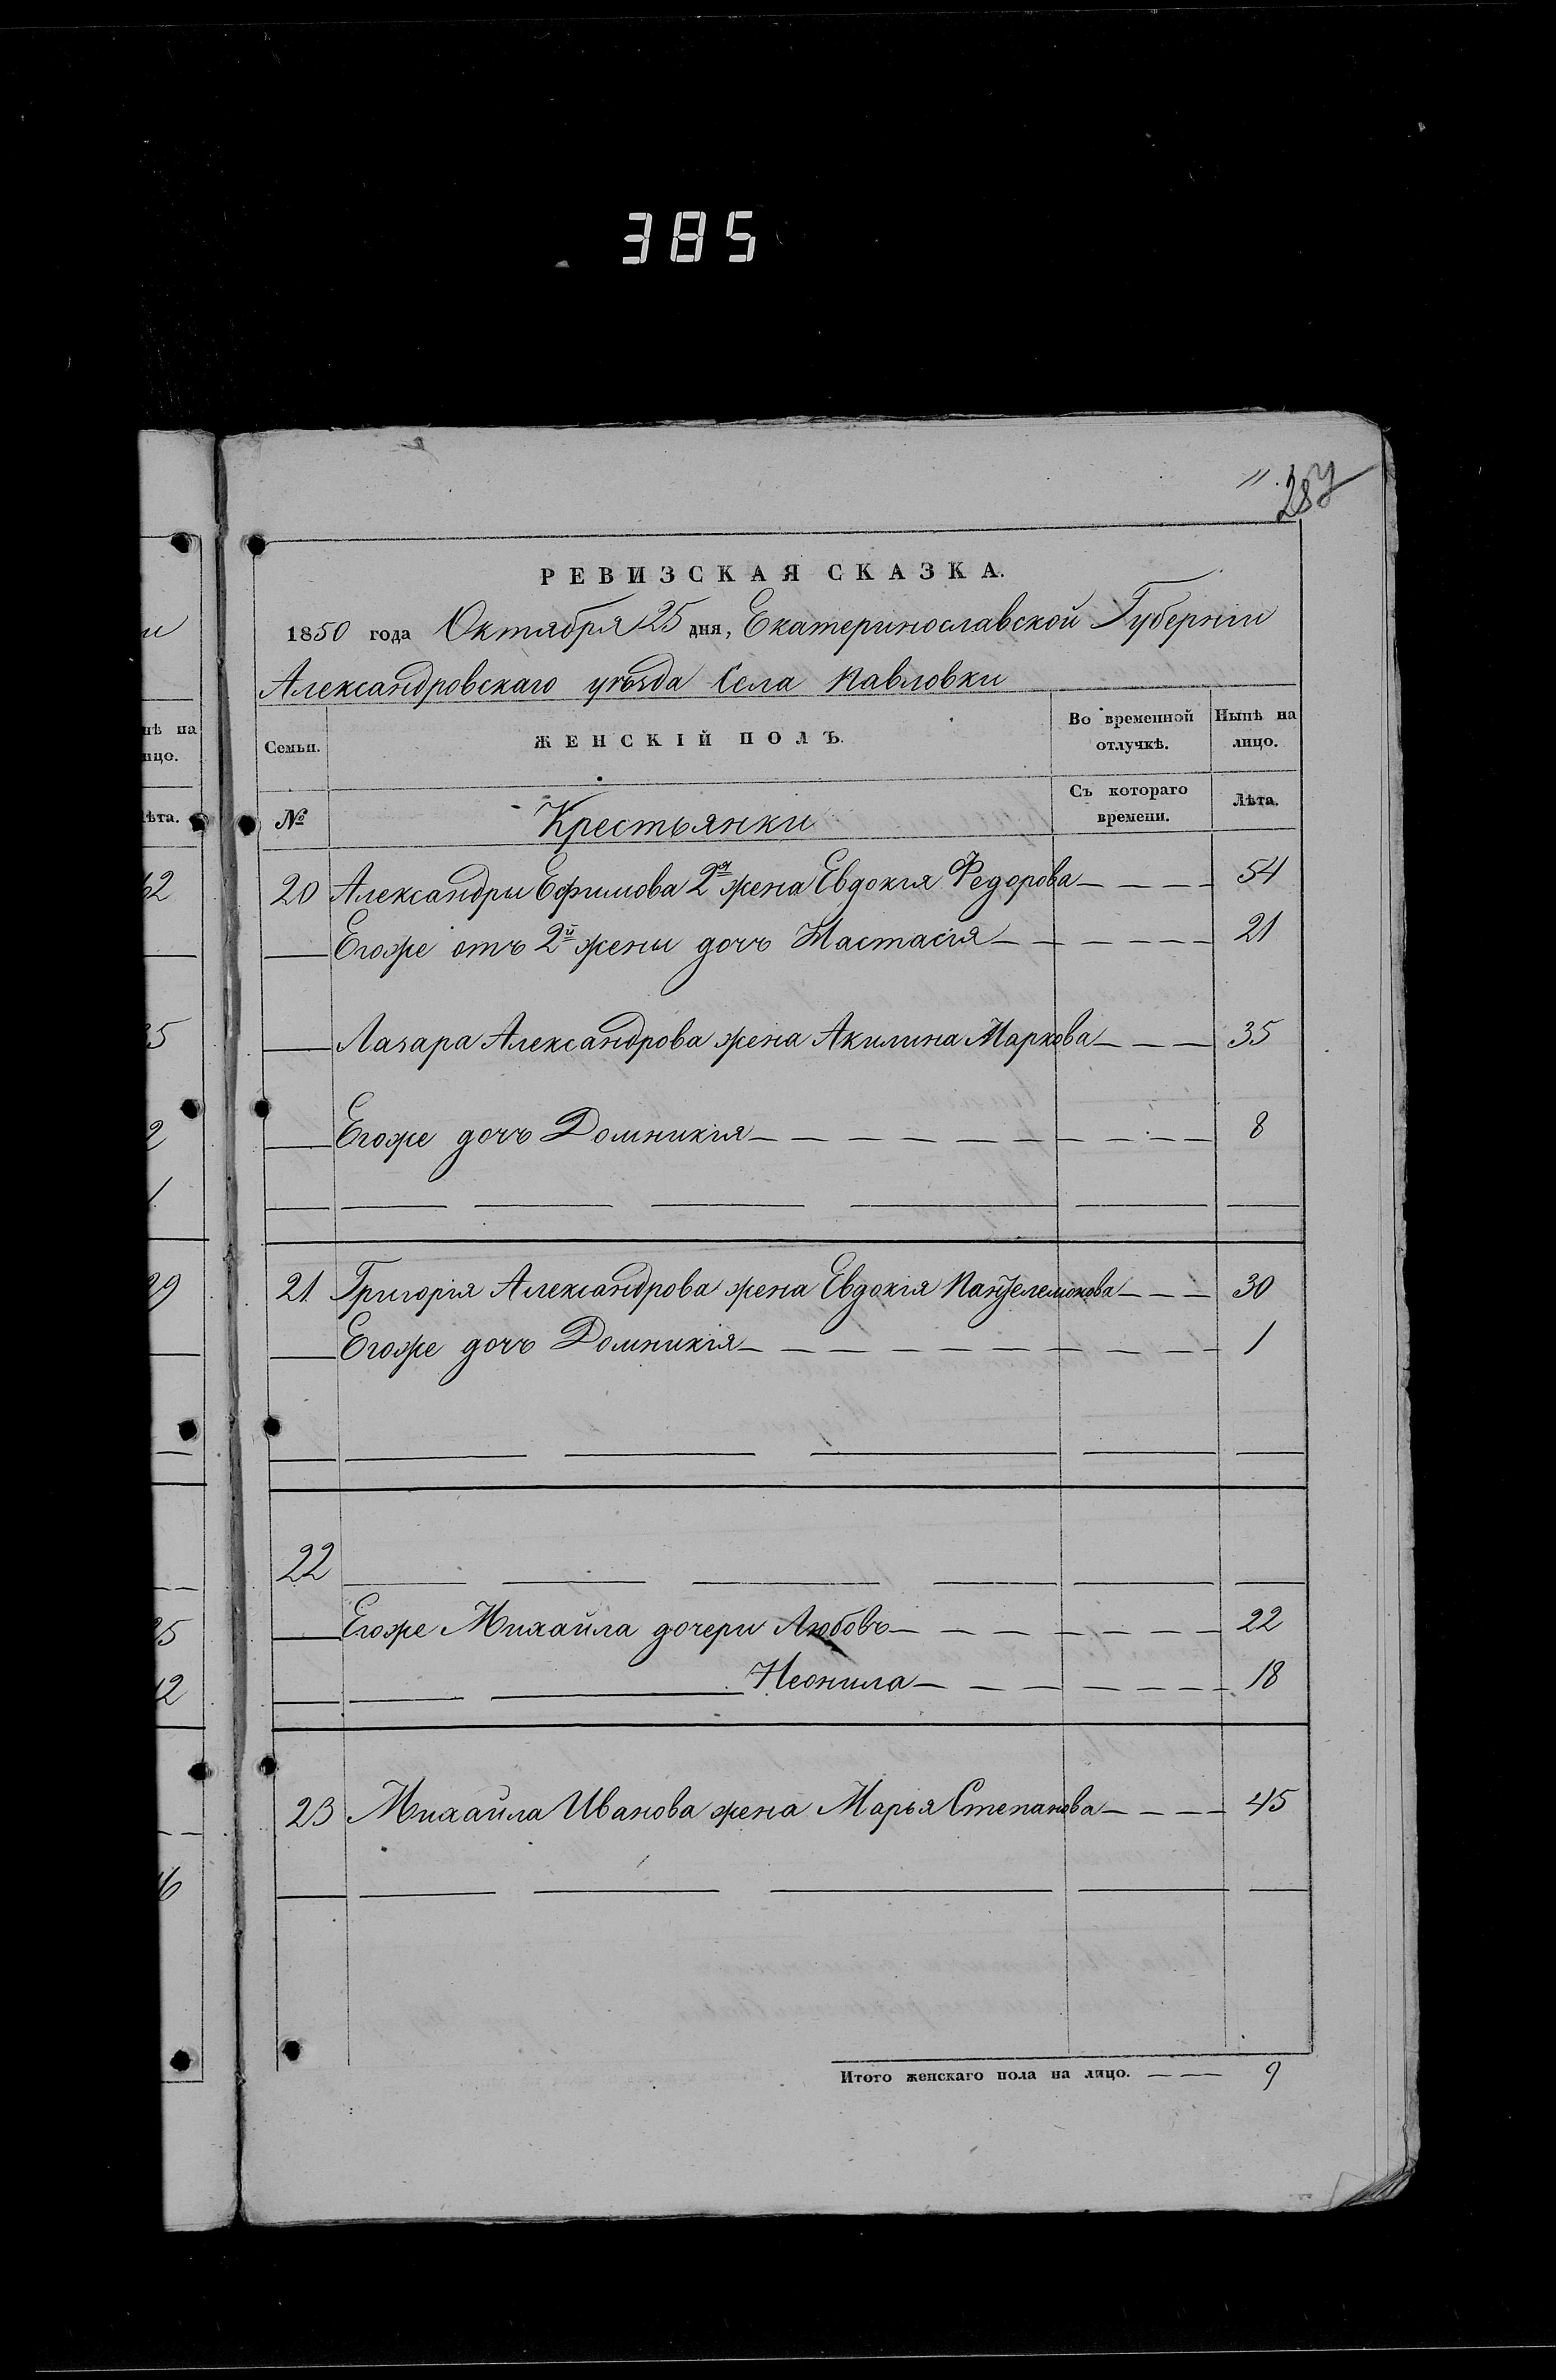 385
287
РЕВИЗСКАЯ СКАЗКА.
1850 года Октября 25 дня, Екатеринославской Губерніи
Александровскаго уѣзда Села Павловки
Семьи. ЖЕНСКІЙ ПОЛЪ. Во временной отлучкѣ. Нынѣ на лицо.
№ Крестьянки Съ котораго времени. Лѣта.
20 Александры Ефимова 2я жена Евдокия Федорова 54
Егоже отъ 2й жены дочь Настасія 21
Лазара Александрова жена Акилина Маркова 35
Егоже дочь Домникия 8
21 Григорія Александрова жена Евдокія Пантелемонова 30
Егоже дочь Домникія 1
22
Егоже Михайла дочери Любовь 22
Неонила 18
23 Михайла Иванова жена Марья Степанова 45
Итого женскаго пола на лицо. 9